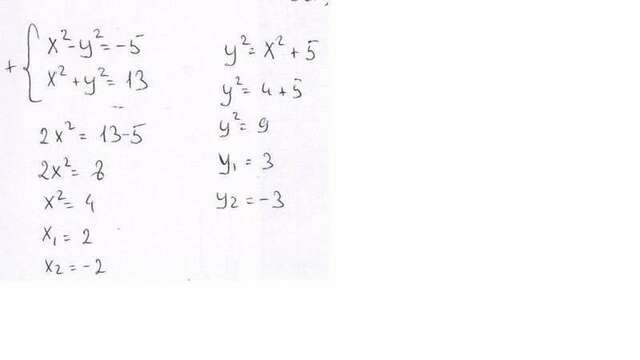 + { x²-y²=-5
x²+y²= 13
2x² = 13-5
2x²= 8
x²= 4
x₁ = 2
x₂ = -2
y²= x²+5
y²= 4+5
y²= 9
y₁ = 3
y₂ = -3